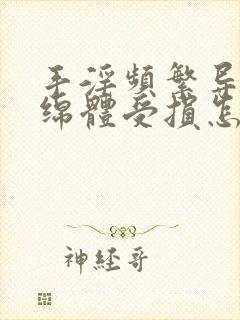 手淫頻繁导
绵體受損怎
神经哥